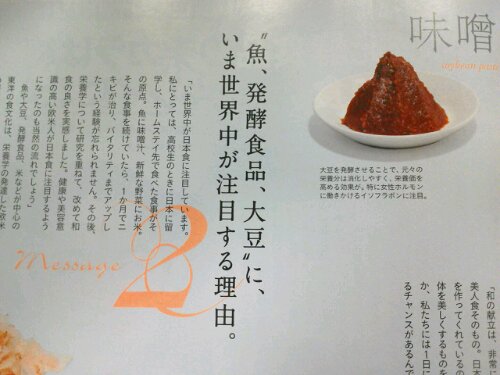 味噌
soybean paste
大豆を発酵させることで、元々の
栄養分は消化しやすく、栄養価を
高める効果が。特に女性ホルモン
に働きかけるイソフラボンに注目。
“魚、発酵食品、大豆”に、
いま世界中が注目する理由。
Message
2
「いま世界中が日本食に注目しています。
私にとっては、高校生のときに日本に留
学し、ホームステイ先で食べた食事がそ
の原点。魚に味噌汁、新鮮な野菜にお米。
そんな食事を続けていたら、1か月でニ
キビが治り、バイタリティまでアップし
たという経験が忘れられません。その後、
栄養学について研究を重ねて、改めて和
食の良さを実感しました。健康や美容意
識の高い欧米人が日本食に注目するよう
になったのも当然の流れでしょう」
魚や大豆、発酵食品、米などが中心の
東洋の食文化は、栄養学の発達した欧米
「和の献立は、非常に
美人食そのもの。日本
を作ってくれているの
体を美しくするものを
か、私たちには1日に
るチャンスがあるんで